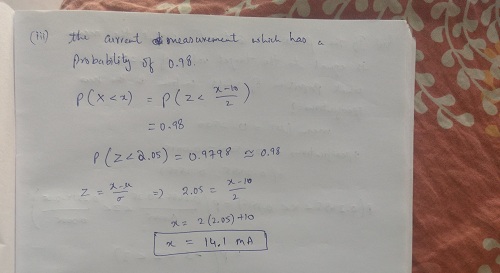 (iii) the current measurement which has a
Probability of 0.98.
P(X<x) = P(Z< (x-10)/2)
= 0.98
P(Z<2.05) = 0.9798 ≃ 0.98
Z = (x-u)/σ => 2.05 = (x-10)/2
x = 2(2.05)+10
x = 14.1 mA